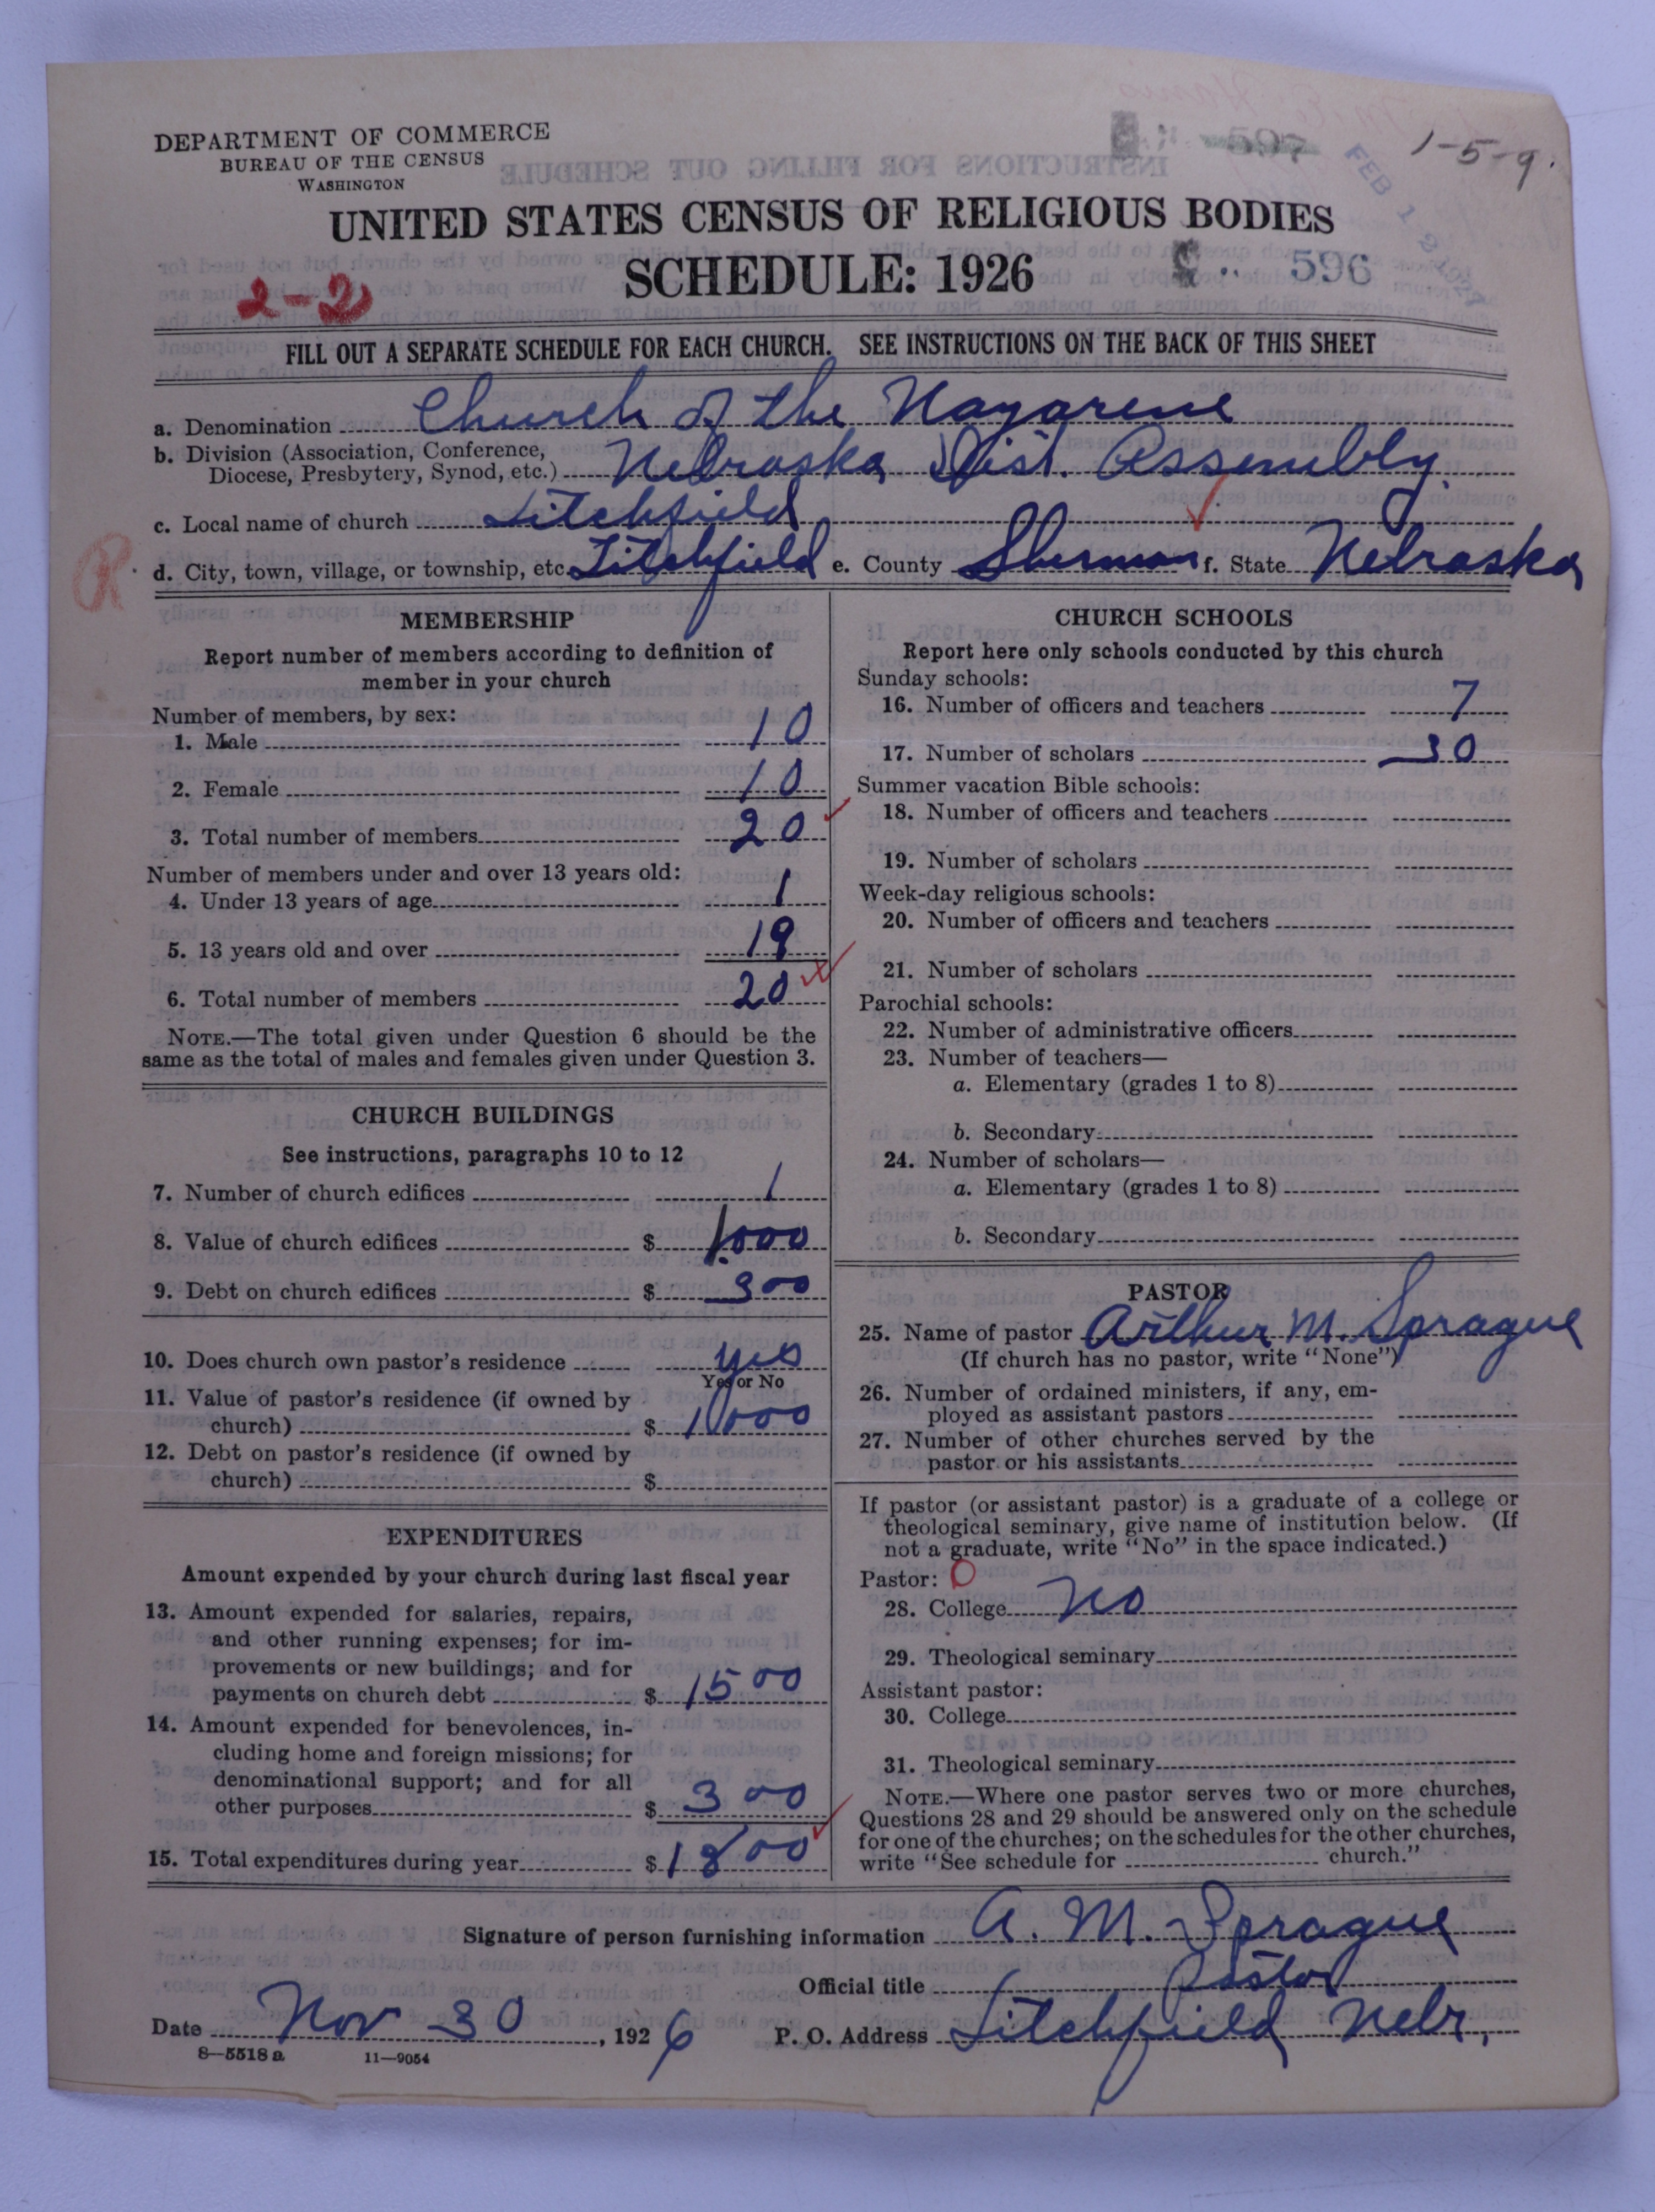 DEPARTMENT OF COMMERCE
BUREAU OF THE CENSUS
WASHINGTON
1-5-9.
UNITED STATES CENSUS OF RELIGIOUS BODIES
SCHEDULE: 1926
596
2-2
FILL OUT A SEPARATE SCHEDULE FOR EACH CHURCH. SEE INSTRUCTIONS ON THE BACK OF THIS SHEET
a. Denomination Church of the Nazarene
b. Division (Association, Conference,
Diocese, Presbytery, Synod, etc.) Nebraska Dist. Assembly
c. Local name of church Litchfield
R
d. City, town, village, or township, etc. Litchfield e. County Sherman f. State Nebraska
MEMBERSHIP
Report number of members according to definition of
member in your church
Number of members, by sex:
1. Male 10
2. Female 10
3. Total number of members 20
Number of members under and over 13 years old:
4. Under 13 years of age 1
5. 13 years old and over 19
6. Total number of members 20
NOTE.—The total given under Question 6 should be the
same as the total of males and females given under Question 3.
CHURCH BUILDINGS
See instructions, paragraphs 10 to 12
7. Number of church edifices 1
8. Value of church edifices $ 1000
9. Debt on church edifices $ 300
10. Does church own pastor's residence yes
Yes or No
11. Value of pastor's residence (if owned by
church) $ 1000
12. Debt on pastor's residence (if owned by
church) $
EXPENDITURES
Amount expended by your church during last fiscal year
13. Amount expended for salaries, repairs,
and other running expenses; for im-
provements or new buildings; and for
payments on church debt $ 1500
14. Amount expended for benevolences, in-
cluding home and foreign missions; for
denominational support; and for all
other purposes $ 300
15. Total expenditures during year $ 1800
CHURCH SCHOOLS
Report here only schools conducted by this church
Sunday schools:
16. Number of officers and teachers 7
17. Number of scholars 30
Summer vacation Bible schools:
18. Number of officers and teachers
19. Number of scholars
Week-day religious schools:
20. Number of officers and teachers
21. Number of scholars
Parochial schools:
22. Number of administrative officers
23. Number of teachers—
a. Elementary (grades 1 to 8)
b. Secondary
24. Number of scholars—
a. Elementary (grades 1 to 8)
b. Secondary
PASTOR
25. Name of pastor Arthur M. Sprague
(If church has no pastor, write "None")
26. Number of ordained ministers, if any, em-
ployed as assistant pastors
27. Number of other churches served by the
pastor or his assistants
If pastor (or assistant pastor) is a graduate of a college or
theological seminary, give name of institution below. (If
not a graduate, write "No" in the space indicated.)
Pastor: O
28. College No
29. Theological seminary
Assistant pastor:
30. College
31. Theological seminary
NOTE.—Where one pastor serves two or more churches,
Questions 28 and 29 should be answered only on the schedule
for one of the churches; on the schedules for the other churches,
write "See schedule for church."
Signature of person furnishing information A. M. Sprague
Official title Pastor
Date Nov 30, 1926 P. O. Address Litchfield Nebr.
8—5518 a 11—9054